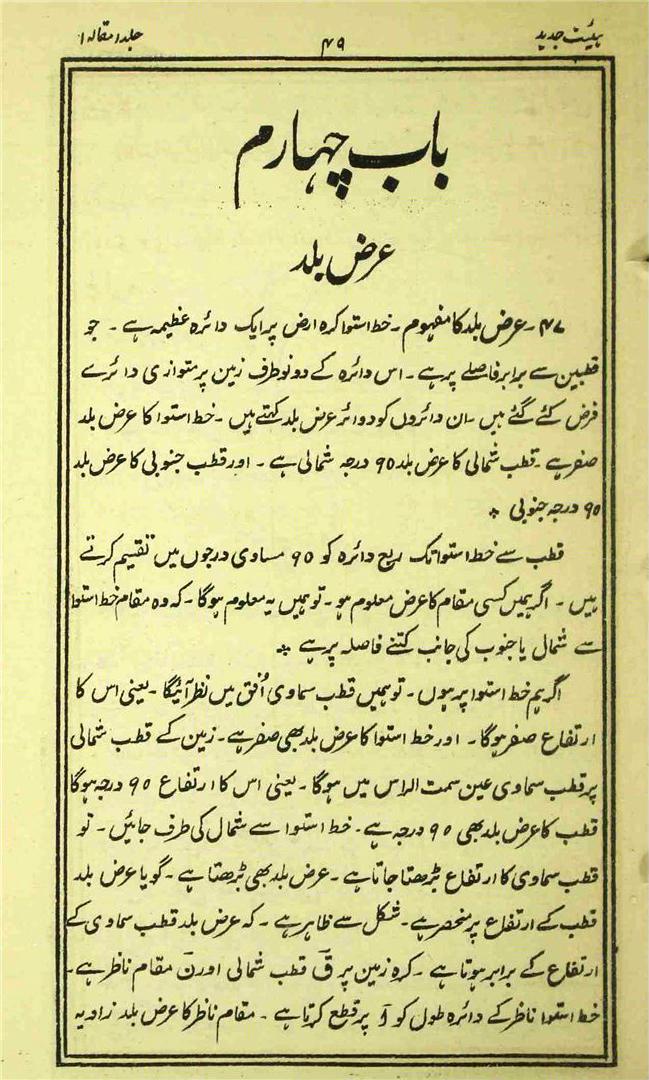 ہیئت جدید
۴۹
جلد ۱ مقالہ ۱
باب چہارم
عرض بلد
۴۷ ۔ عرض بلد کا مفہوم ۔ خط استوا کرہ ارض پر ایک دائرہ عظیمہ ہے ۔ جو
قطبین سے برابر فاصلے پر ہے ۔ اس دائرہ کے دونو طرف زمین پر متوازی دائرے
فرض کئے گئے ہیں ۔ ان دائروں کو دوائر عرض بلد کہتے ہیں ۔ خط استوا کا عرض بلد
صفر ہے ۔ قطب شمالی کا عرض بلد ۹۰ درجہ شمالی ہے ۔ اور قطب جنوبی کا عرض بلد
۹۰ درجہ جنوبی ٭
قطب سے خط استوا تک ربع دائرہ کو ۹۰ مساوی درجوں میں تقسیم کرتے
ہیں ۔ اگر ہمیں کسی مقام کا عرض معلوم ہو ۔ تو ہمیں یہ معلوم ہوگا ۔ کہ وہ مقام خط استوا
سے شمال یا جنوب کی جانب کتنے فاصلہ پر ہے ٭
اگر ہم خط استوا پر ہوں ۔ تو ہمیں قطب سماوی اُفق میں نظر آئیگا ۔ یعنی اس کا
ارتفاع صفر ہوگا ۔ اور خط استوا کا عرض بلد بھی صفر ہے ۔ زمین کے قطب شمالی
پر قطب سماوی عین سمت الراس میں ہوگا ۔ یعنی اس کا ارتفاع ۹۰ درجہ ہوگا
قطب کا عرض بلد بھی ۹۰ درجہ ہے ۔ خط استوا سے شمال کی طرف جائیں ۔ تو
قطب سماوی کا ارتفاع بڑھتا جاتا ہے ۔ عرض بلد بھی بڑھتا ہے ۔ گویا عرض بلد
قطب کے ارتفاع پر منحصر ہے ۔ شکل سے ظاہر ہے ۔ کہ عرض بلد قطب سماوی کے
ارتفاع کے برابر ہوتا ہے ۔ کرہ زمین پر قَ قطب شمالی اور نَ مقام ناظر ہے ۔
خط استوا ناظر کے دائرہ طول کو وَ پر قطع کرتا ہے ۔ مقام ناظر کا عرض بلد زاویہ